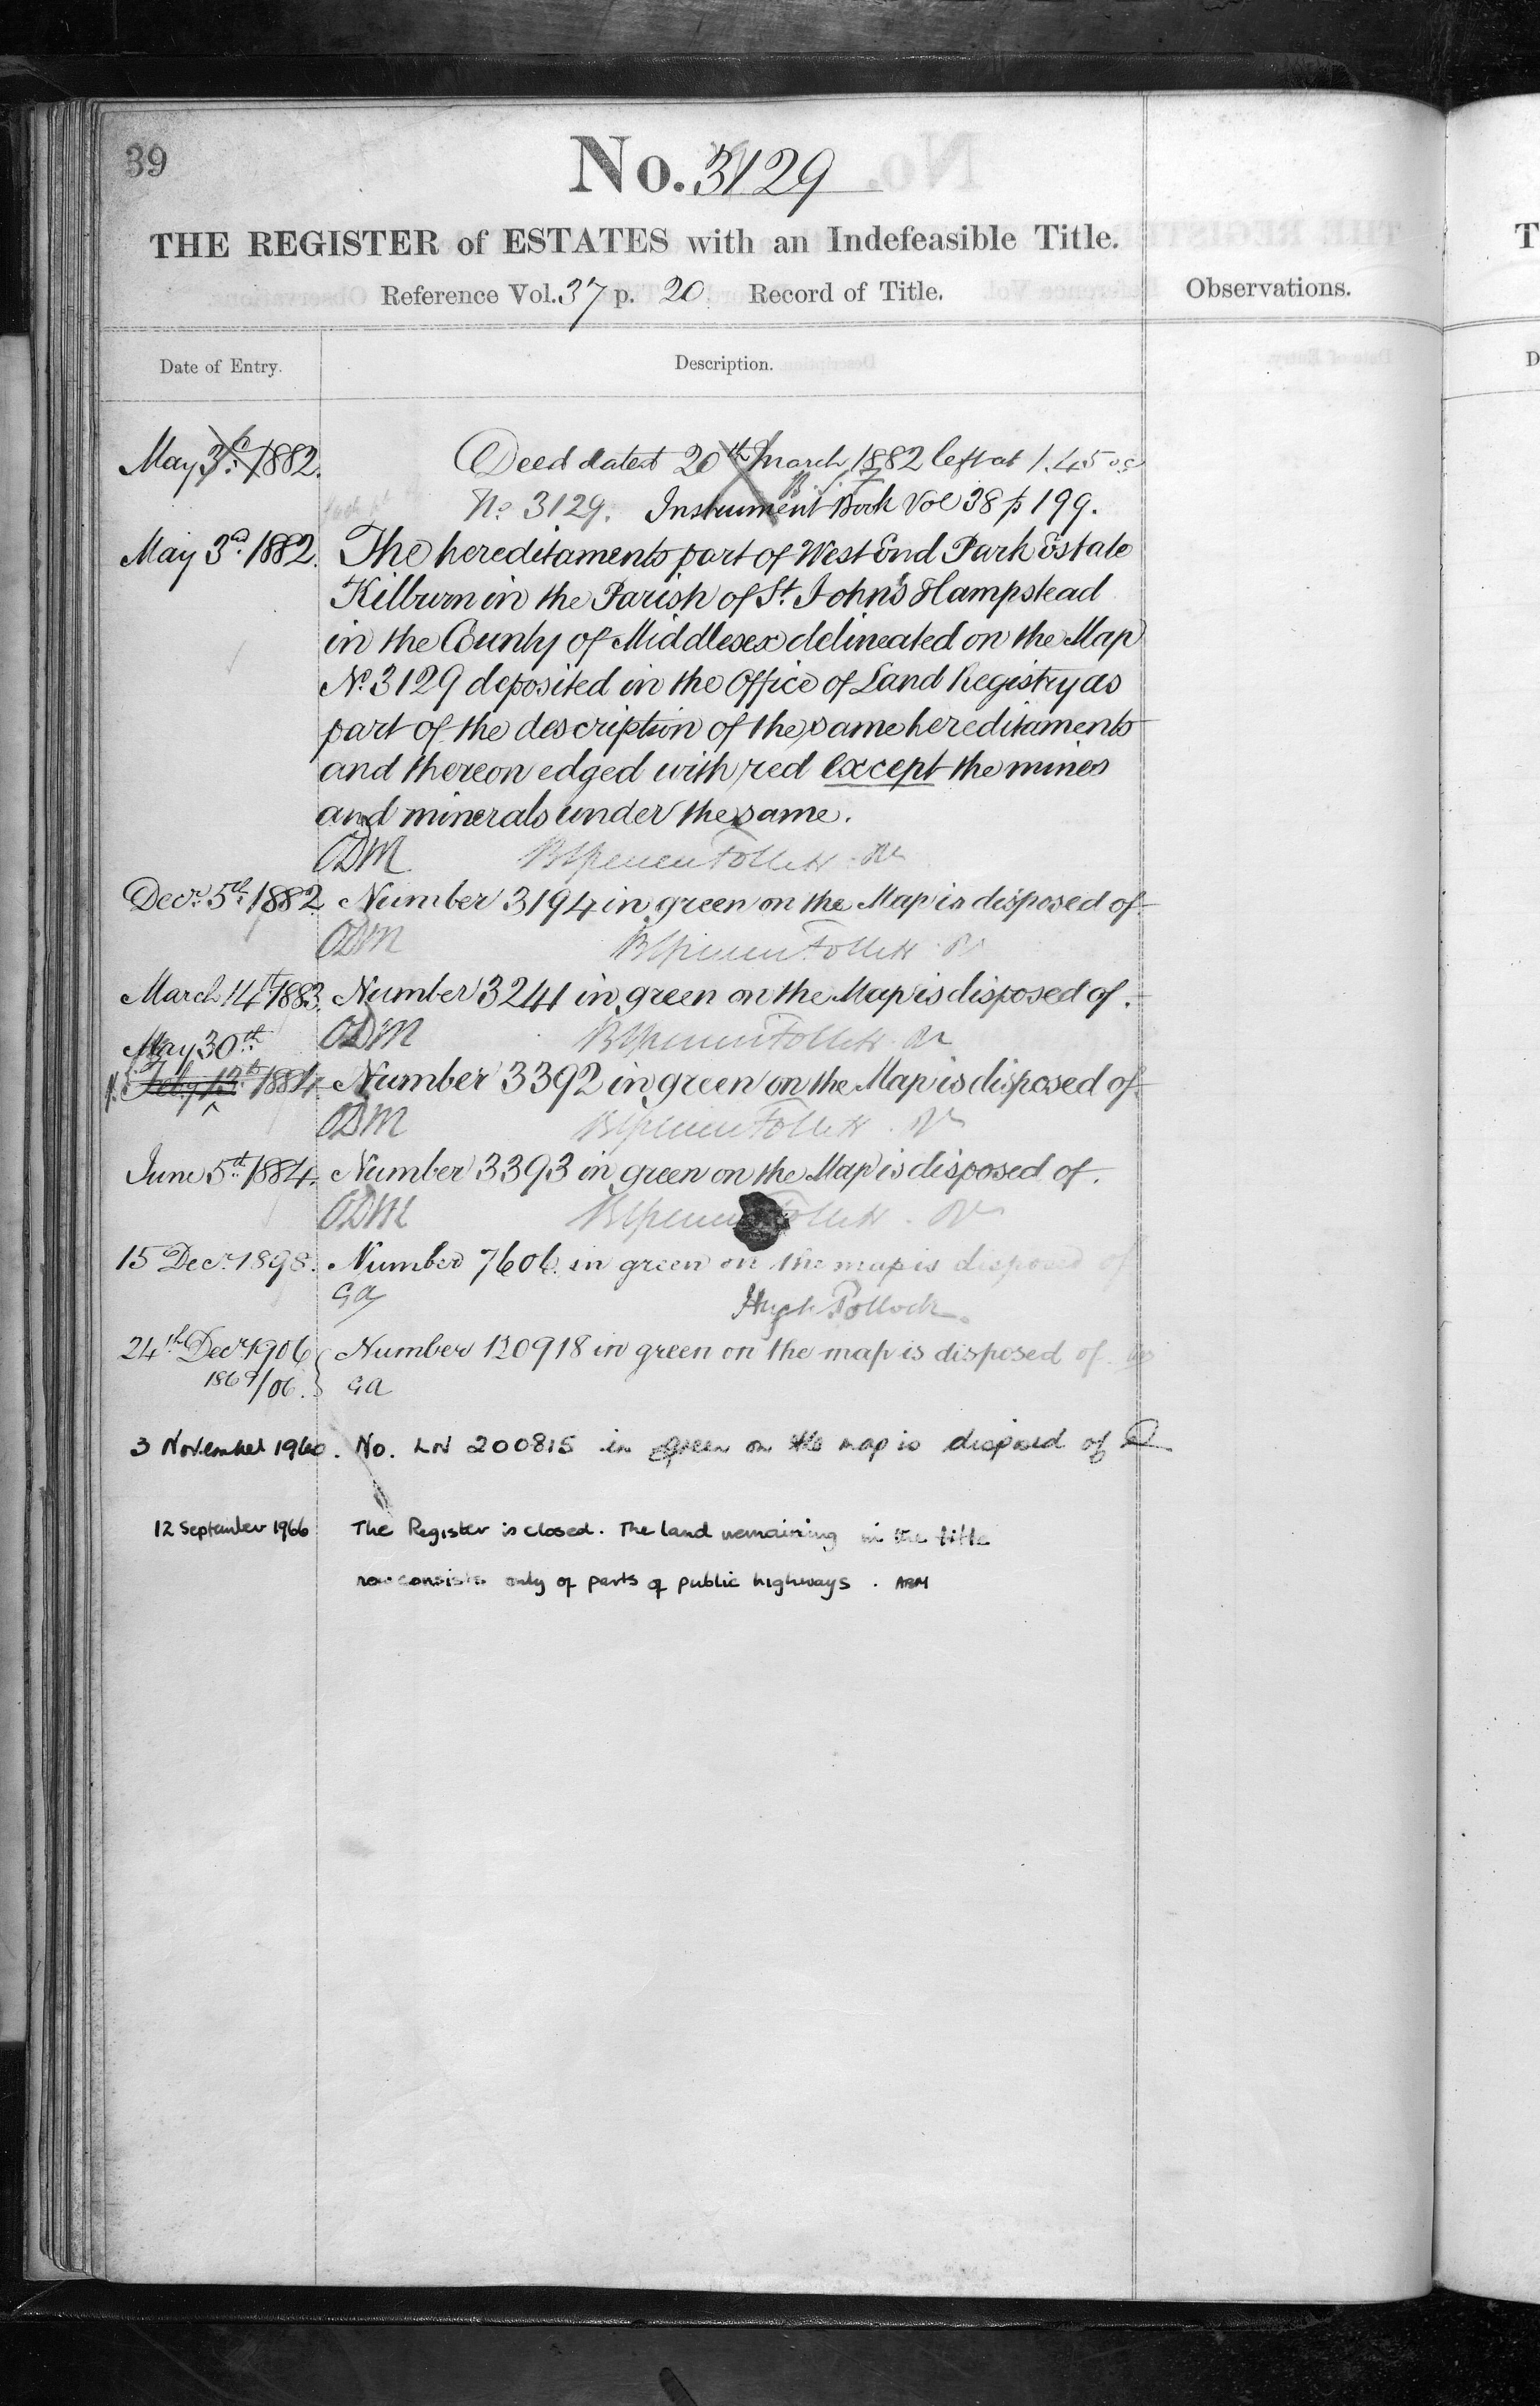 39
No. 3129
THE REGISTER of ESTATES with an Indefeasible Title.
Reference Vol. 37 p. 20 Record of Title.
Observations.
Date of Entry.
Description.
May 3d. 1882. Deed dated 20th March 1882 left at 1.45 oc
No 3129. Instrument Book Vol 38 p 199.
May 3d. 1882. The hereditaments part of West End Park Estate
Kilburn in the Parish of St. John's Hampstead
in the County of Middlesex delineated on the Map
No. 3129 deposited in the Office of Land Registry as
part of the description of the same hereditaments
and thereon edged with red except the mines
and minerals under the same.
ODM BSpencer Follett
Decr. 5th. 1882 Number 3194 in green on the Map is disposed of.
ODM BSpencer Follett
March 14th 1883. Number 3241 in green on the Map is disposed of.
May 30th ODM BSpencer Follett
1884. Number 3392 in green on the Map is disposed of.
ODM BSpencer Follett
June 5th. 1884. Number 3393 in green on the Map is disposed of.
ODM BSpencer Follett
15 Decr. 1898. Number 7606 in green on the map is disposed of
GA Hugh Pollock.
24th Decr 1906 Number 120918 in green on the map is disposed of.
1869/06. GA
3 November 1960. No. LN 200815 in green on the map is disposed of
12 September 1966 The Register is closed. The land remaining in the title
now consists only of parts of public highways. ABM
T
D